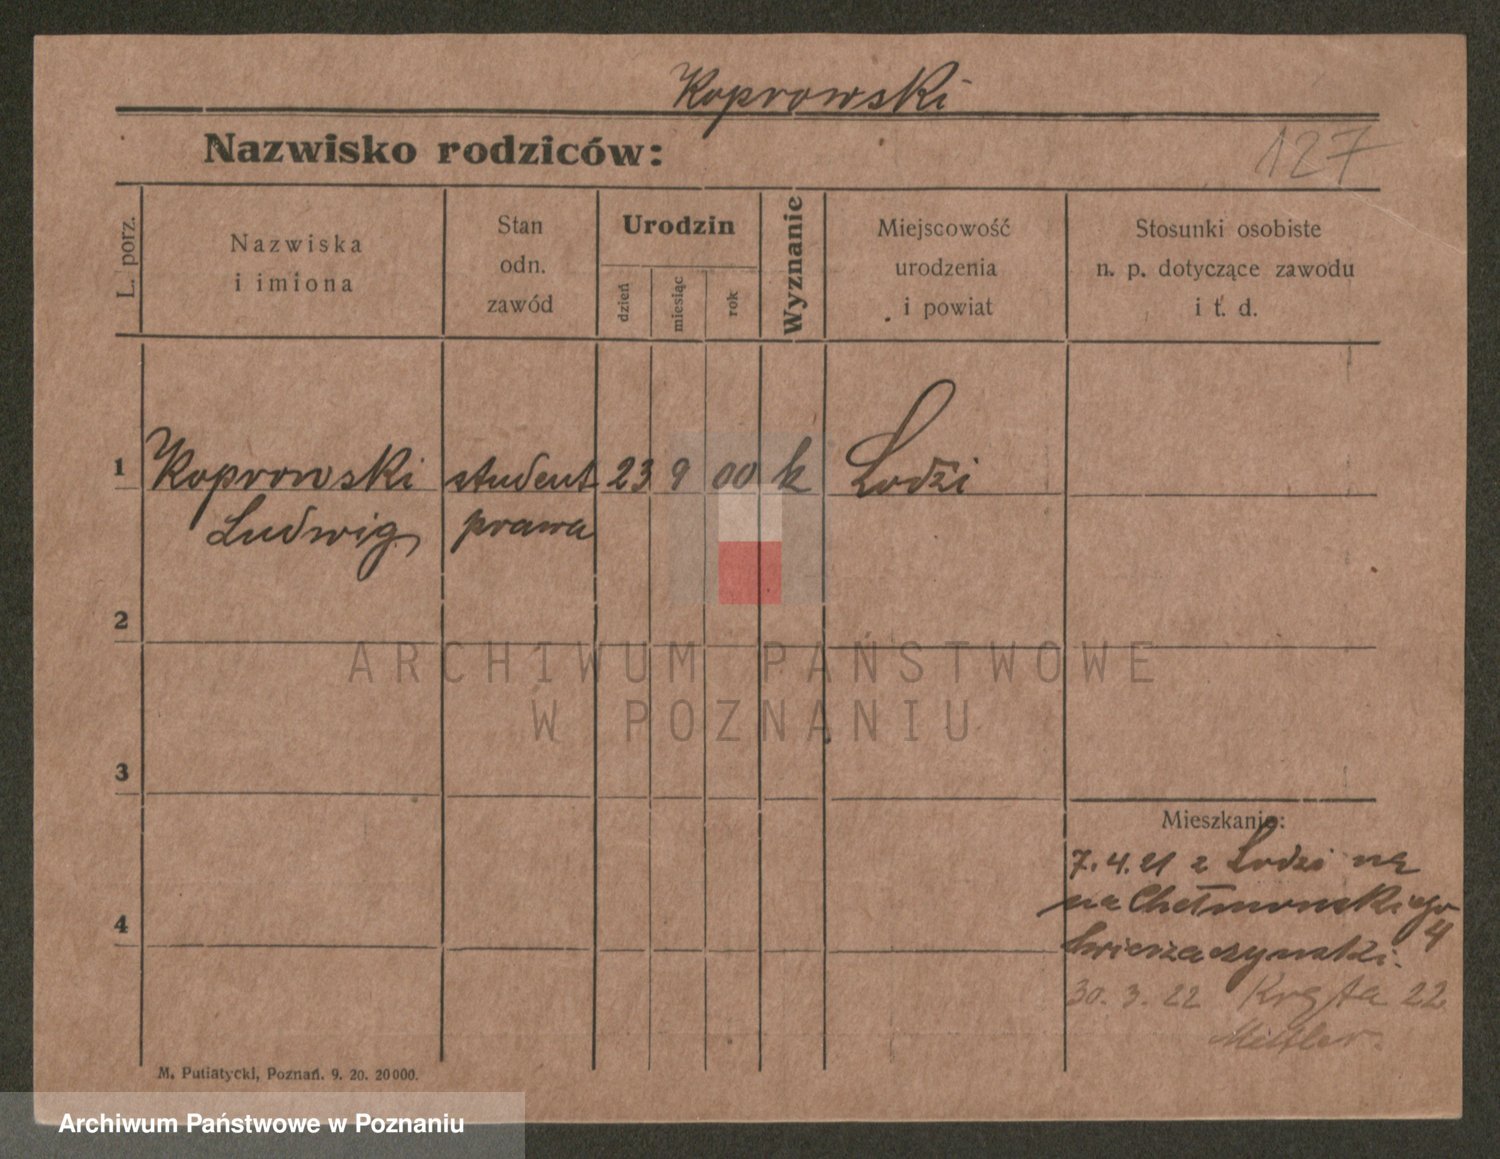 Koprowski
Nazwisko rodziców:
127
L. porz.
Nazwiska
i imiona
Stan
odn.
zawód
Urodzin
dzień
miesiąc
rok
Wyznanie
Miejscowość
urodzenia
i powiat
Stosunki osobiste
n. p. dotyczące zawodu
i t. d.
1 Koprowski student 23 9 00 k Lodzi
Ludwig prawa
2
ARCHIWUM PAŃSTWOWE
W POZNANIU
3
Mieszkanie:
7.4.21 z Lodzi na
na Chełmonskiego
4
4
30.3.22 Kręta 22
M. Putiatycki, Poznań. 9. 20. 20000.
Archiwum Państwowe w Poznaniu